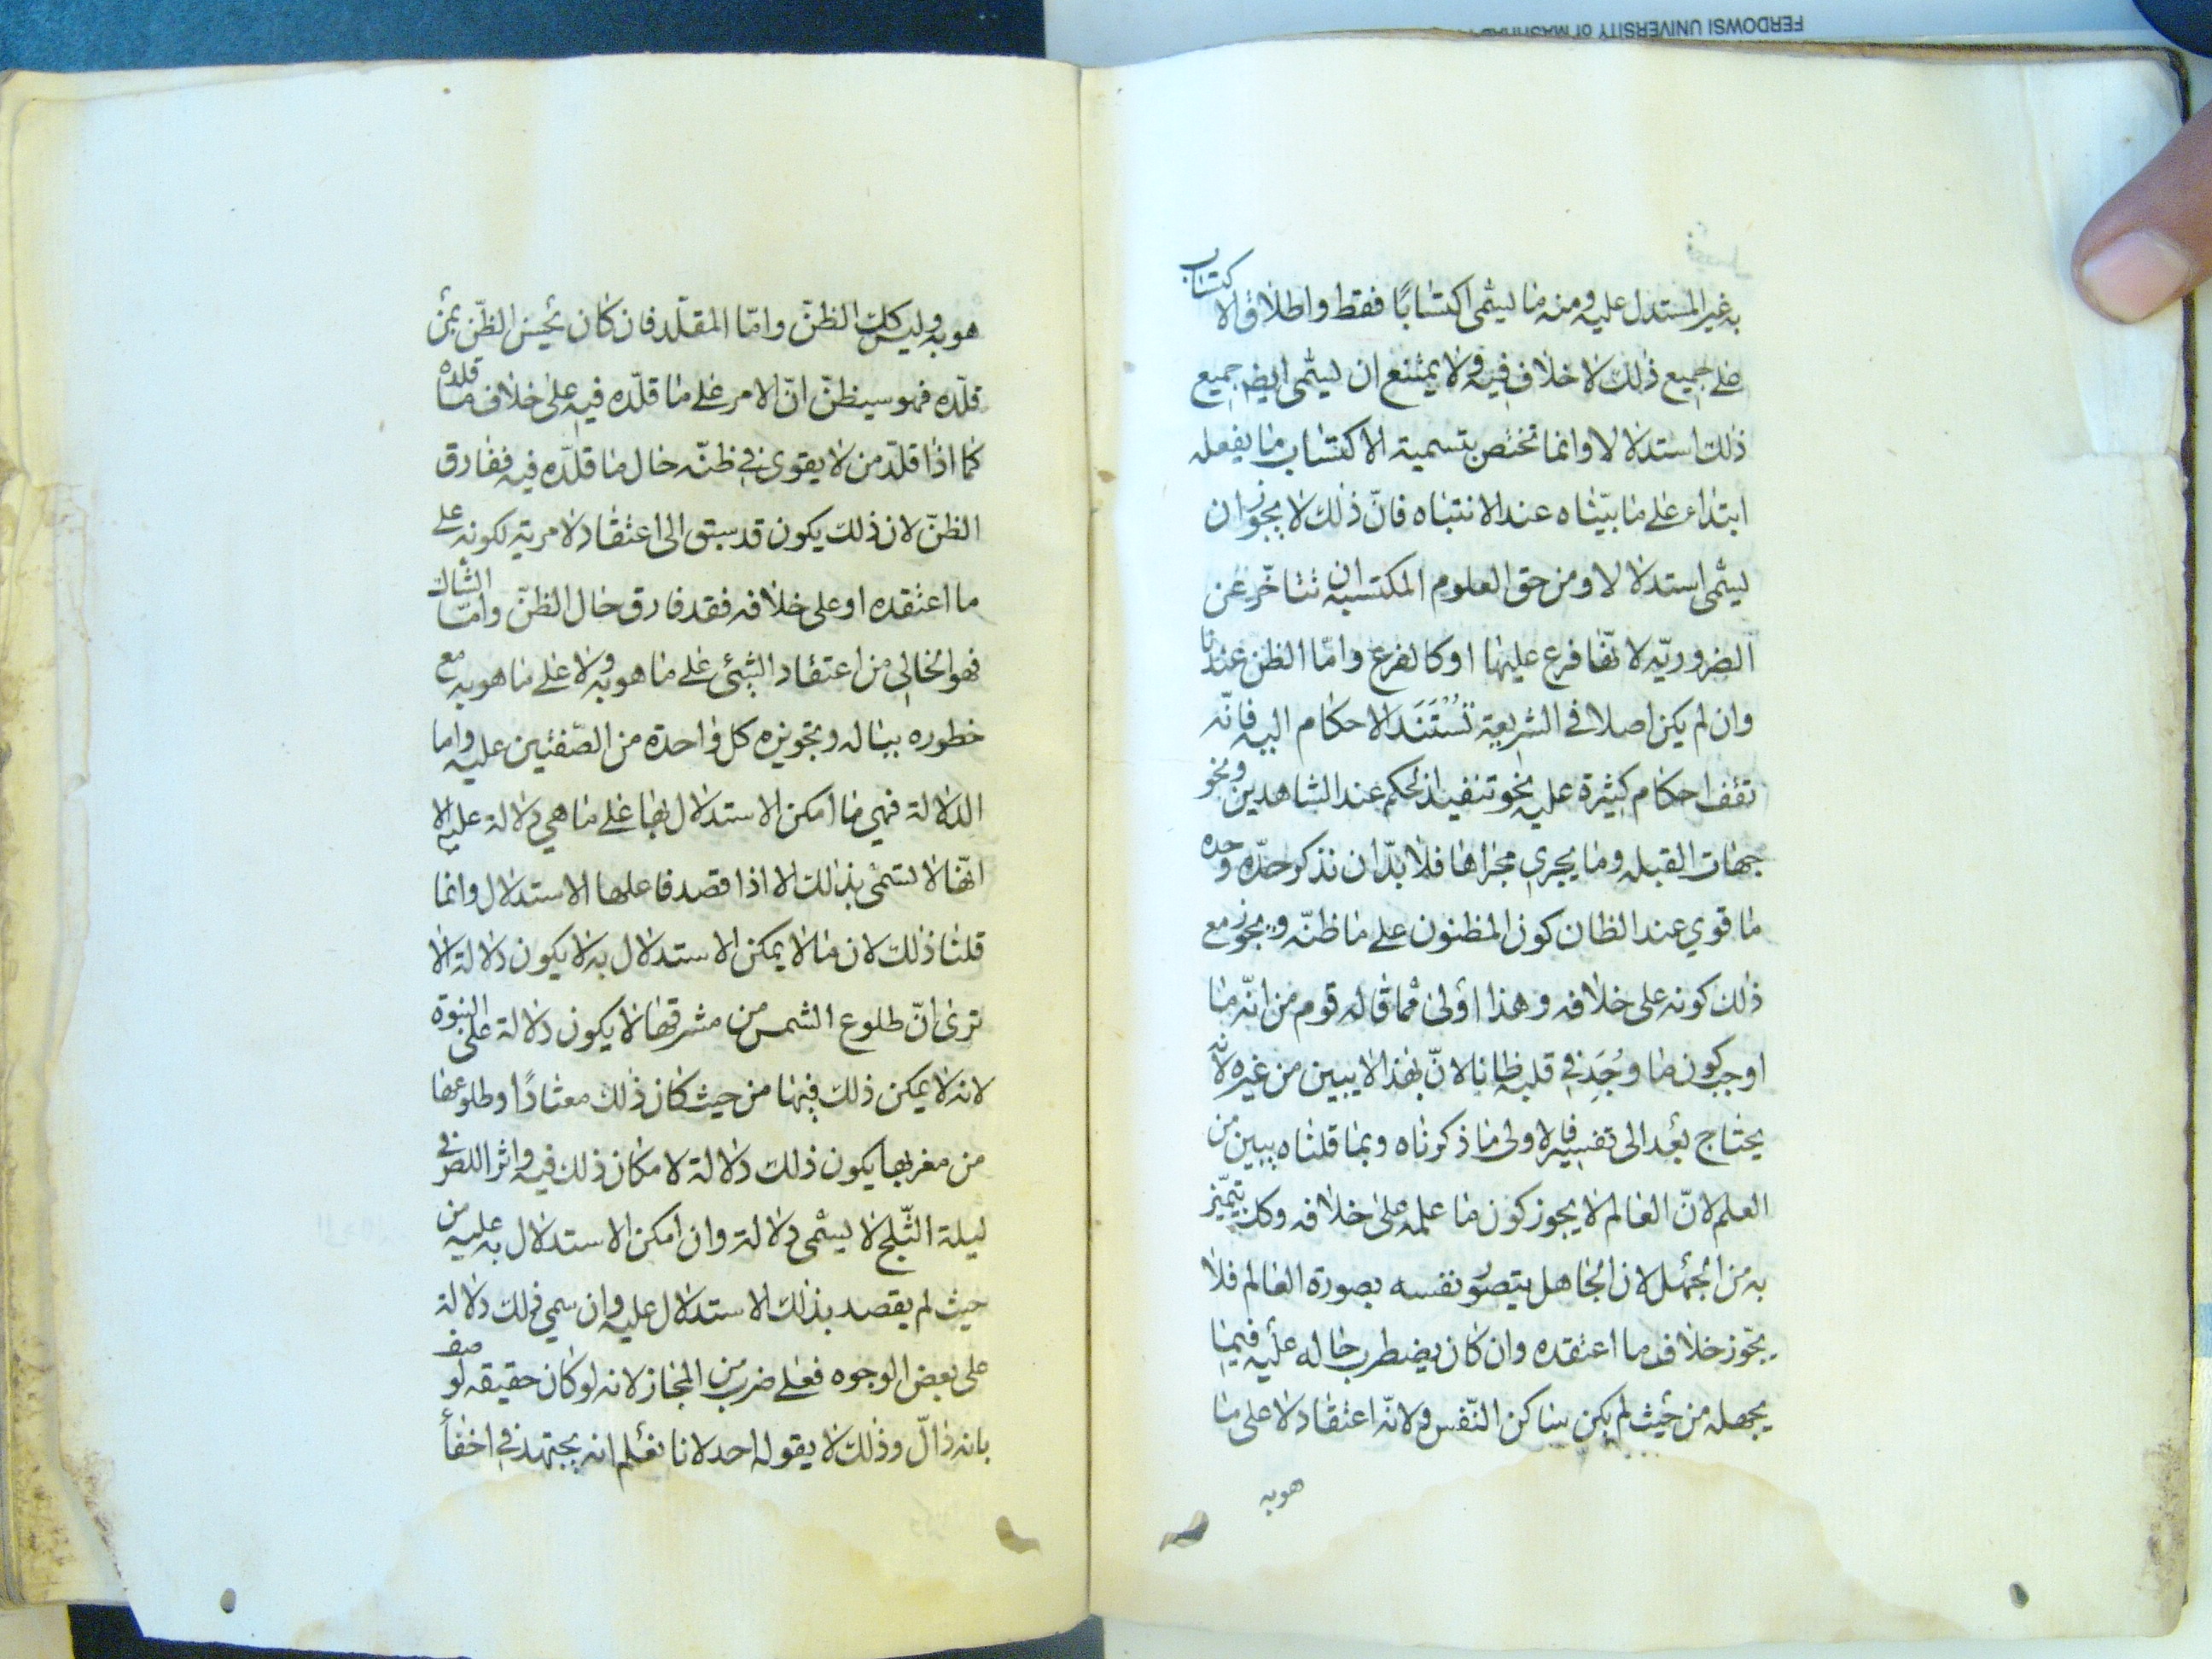 FERDOWSI UNIVERSITY of MASHHAD
به غير المستدل عليه ومنه ما ليسمى اكتسابًا فقط واطلاق الاكتساب
على جميع ذلك لا خلاف فيه ولا يمتنع ان ليسمى ايضا جميع
ذلك استدلالا وانما تختص بتسمية الاكتساب ما يفعله
ابتداء على ما بيّناه عند الانتباه فانّ ذلك لا يجوز ان
ليسمى استدلالا ومن حق العلوم المكتسبه ان تتاخّر عن
الضروريّه لانّها فرع عليها او كالفرع وامّا الظن عندنا
وان لم يكن اصلا في الشريعة تُسْتَنَد الاحكام اليه فانّه
تقف احكام كثيرة عليه نحو تنفيذ الحكم عند الشاهدين ونحو
جهات القبله وما يجري مجراها فلا بدّ ان نذكر حدّه وحده
ما قوي عند الظان كون المظنون على ما ظنّه ويجوز مع
ذلك كونه على خلافه وهذا أولى ممّا قاله قوم من انّه ما
اوجب كون ما وُجَد في قلبه ظانا لانّ بهذا لا يبين من غيره لانّه
يحتاج بعد الى تفسير فالاولى ما ذكرناه وبما قلناه يبين من
العلم لانّ العالم لا يجوز كون ما علمه على خلافه وكك يتميّز
به من الجهل لان الجاهل يتصوّر نفسه بصورة العالم فلا
يجّوز خلاف ما اعتقده وان كان يضطرب حاله عليه فيما
يجهله من حيث لم يكن ساكن النّفس ولانّه اعتقاد لا على ما
هو به
هو به وليس كك الظنّ وامّا المقلّد فان كان يحسن الظنّ بمن
قلّده فهو سيظنّ انّ الامر على ما قلّده فيه على خلاف ما قلده
كما اذا قلّد من لا يقوى في ظنّه حال ما قلّده فيه ففارق
الظنّ لان ذلك يكون قد سبق الى اعتقاد لا مزية لكونه على
ما اعتقده او على خلافه فقد فارق حال الظنّ وامّا الشاك
فهو الخالي من اعتقاد الشئ على ما هو به ولا على ما هو به مع
خطوره بباله وتجويزه كل واحدة من الصّفتين عليه واما
الدلالة فهي ما امكن الاستدلال بها على ما هي دلالة عليه الا
انّها لا لتسمى بذلك الا اذا قصد فاعلها الاستدلال وانما
قلنا ذلك لان ما لا يمكن الاستدلال به لا يكون دلالة الا
ترى انّ طلوع الشمس من مشرقها لا يكون دلالة على النبوة
لانه لا يمكن ذلك فيها من حيث كان ذلك معتادًا وطلوعها
من مغربها يكون ذلك دلالة لامكان ذلك فيه واثر اللص في
ليلة الثّلج لا ليسمى دلالة وان امكن الاستدلال به عليه من
حيث لم يقصد بذلك الاستدلال عليه وان سمي ذلك دلالة
على بعض الوجوه فعلى ضرب من المجاز لانه لو كان حقيقه لوصف
بانه دالّ وذلك لا يقوله احد لانا نعلم انه يجتهد في اخفأ